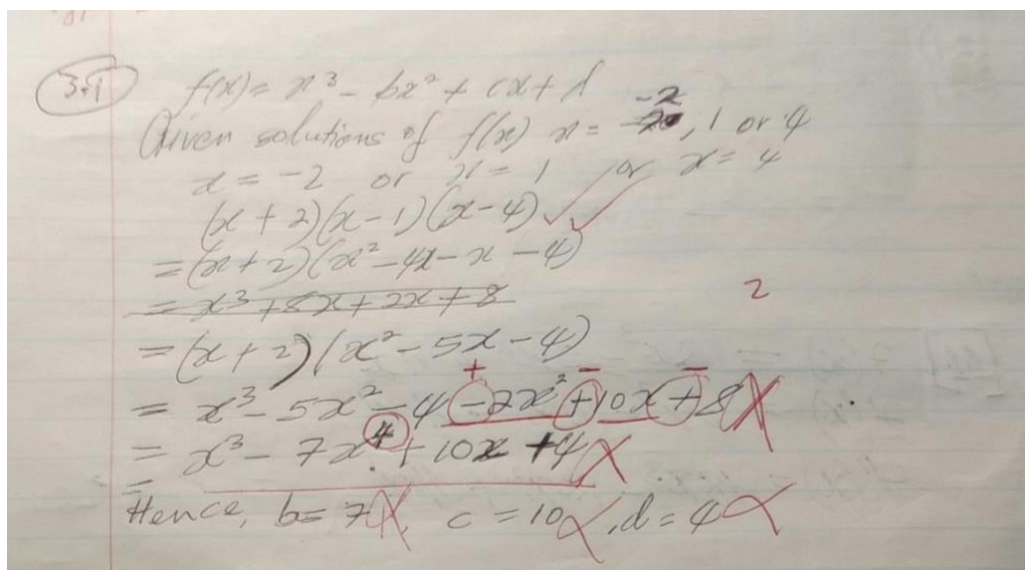 3.1 f(x) = x³ - bx² + cx + d
Given solutions of f(x) x = -2, 1 or 4
x = -2 or x = 1 or x = 4
(x + 2)(x - 1)(x - 4) ✓✓
= (x + 2)(x² - 4x - x - 4)
= x³ + 8x + 2x + 8
2
= (x + 2)(x² - 5x - 4)
+ - -
= x³ - 5x² - 4 - 2x² + 10x + 8 X
= x³ - 7x⁴ + 10x + 4 X
=
Hence, b = 7 X, c = 10 X, d = 4 X